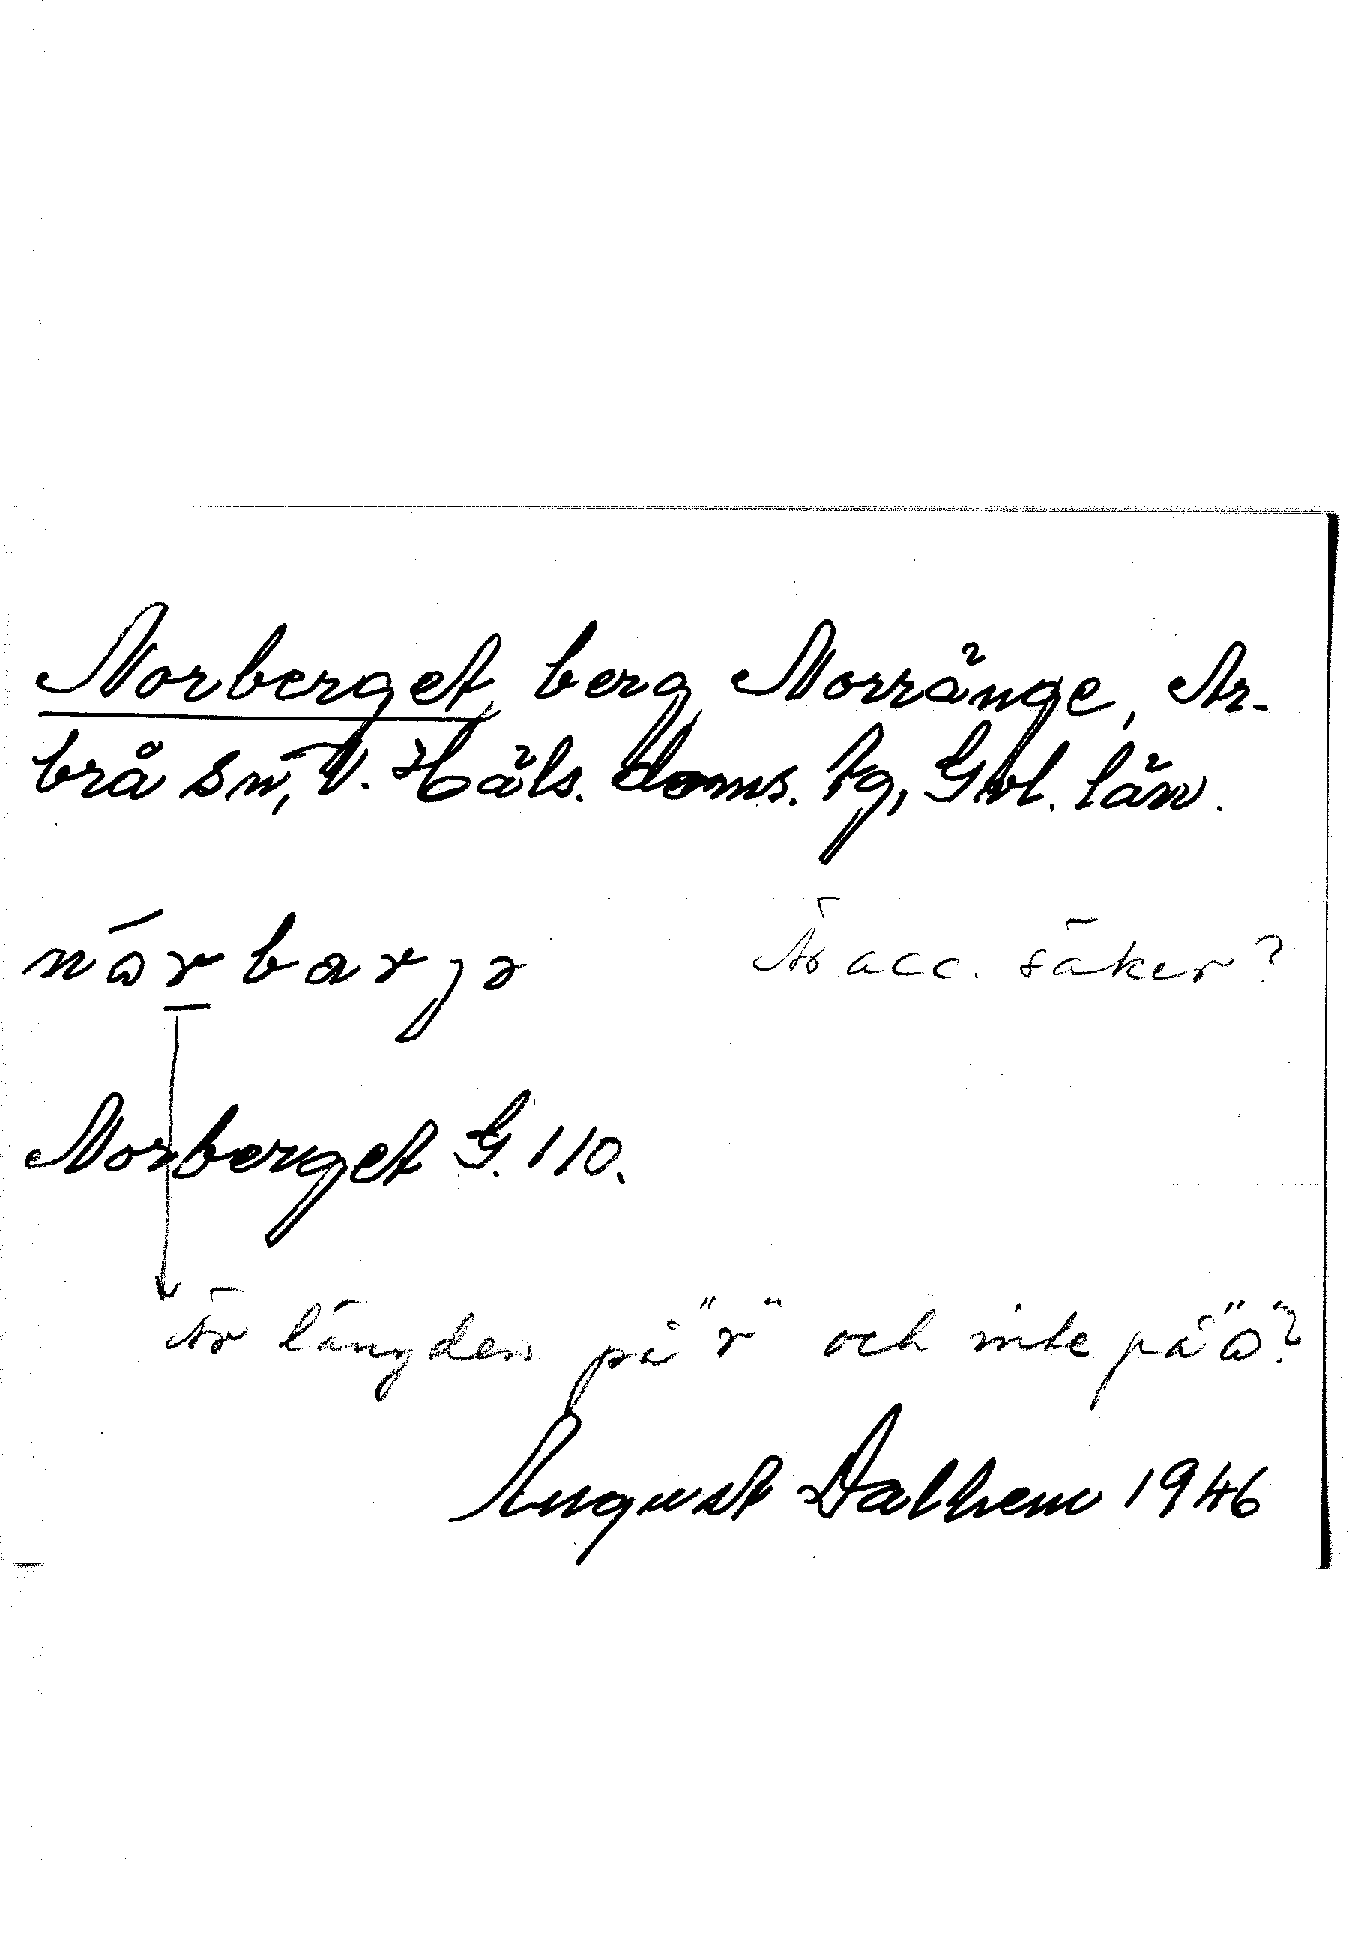 Norberget, berg, Norränge, Ar-
brå sn, V. Häls. doms. tg, Gvl. län.
nórbarjɘ Är acc. säker?
Norberget G. 110.
Är längden på "r" och inte på "o"?
August Dalhem 1946